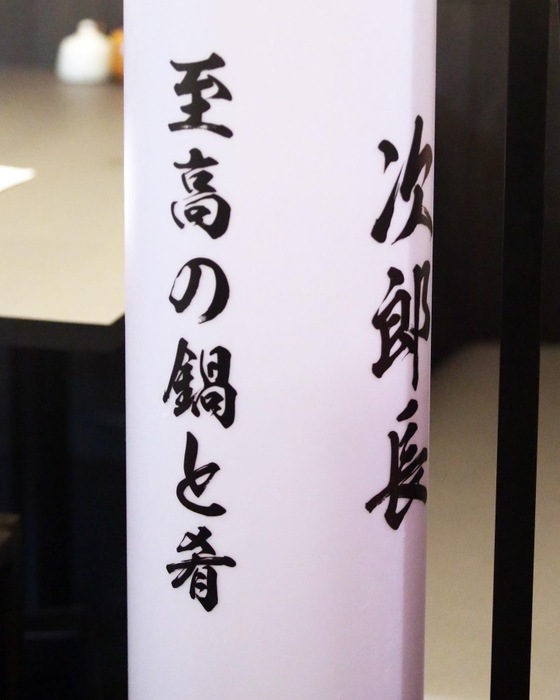 次郎長
至高の鍋と肴